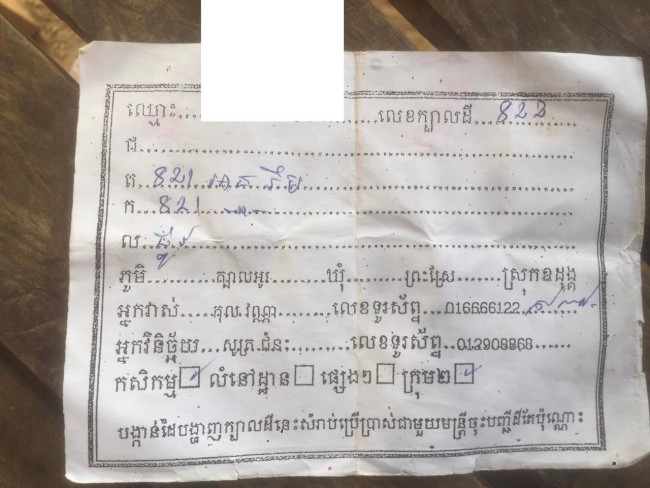 ឈ្មោះ................ លេខក្បាលដី... 822
ជ................
ត. 821
ក. 821
ល. ផ្លូវ
ភូមិ......ក្បាលអូរ......ឃុំ......ព្រះស្រែ......ស្រុកឧដុង្គ
អ្នកវាស់...គុល.វណ្ណា......លេខទូរស័ព្ទ...016666122
អ្នកវិនិច្ឆ័យ...សូត្រ.ជំនះ......លេខទូរស័ព្ទ..012908868
កសិកម្ម ☑ លំនៅដ្ឋាន ☐ ផ្សេងៗ ☐ ក្រុម២ ☑
បង្កាន់ដៃបង្ហាញក្បាលដីនេះសំរាប់ប្រើប្រាស់ជាមួយមន្ត្រីចុះបញ្ជីដីតែប៉ុណ្ណោះ